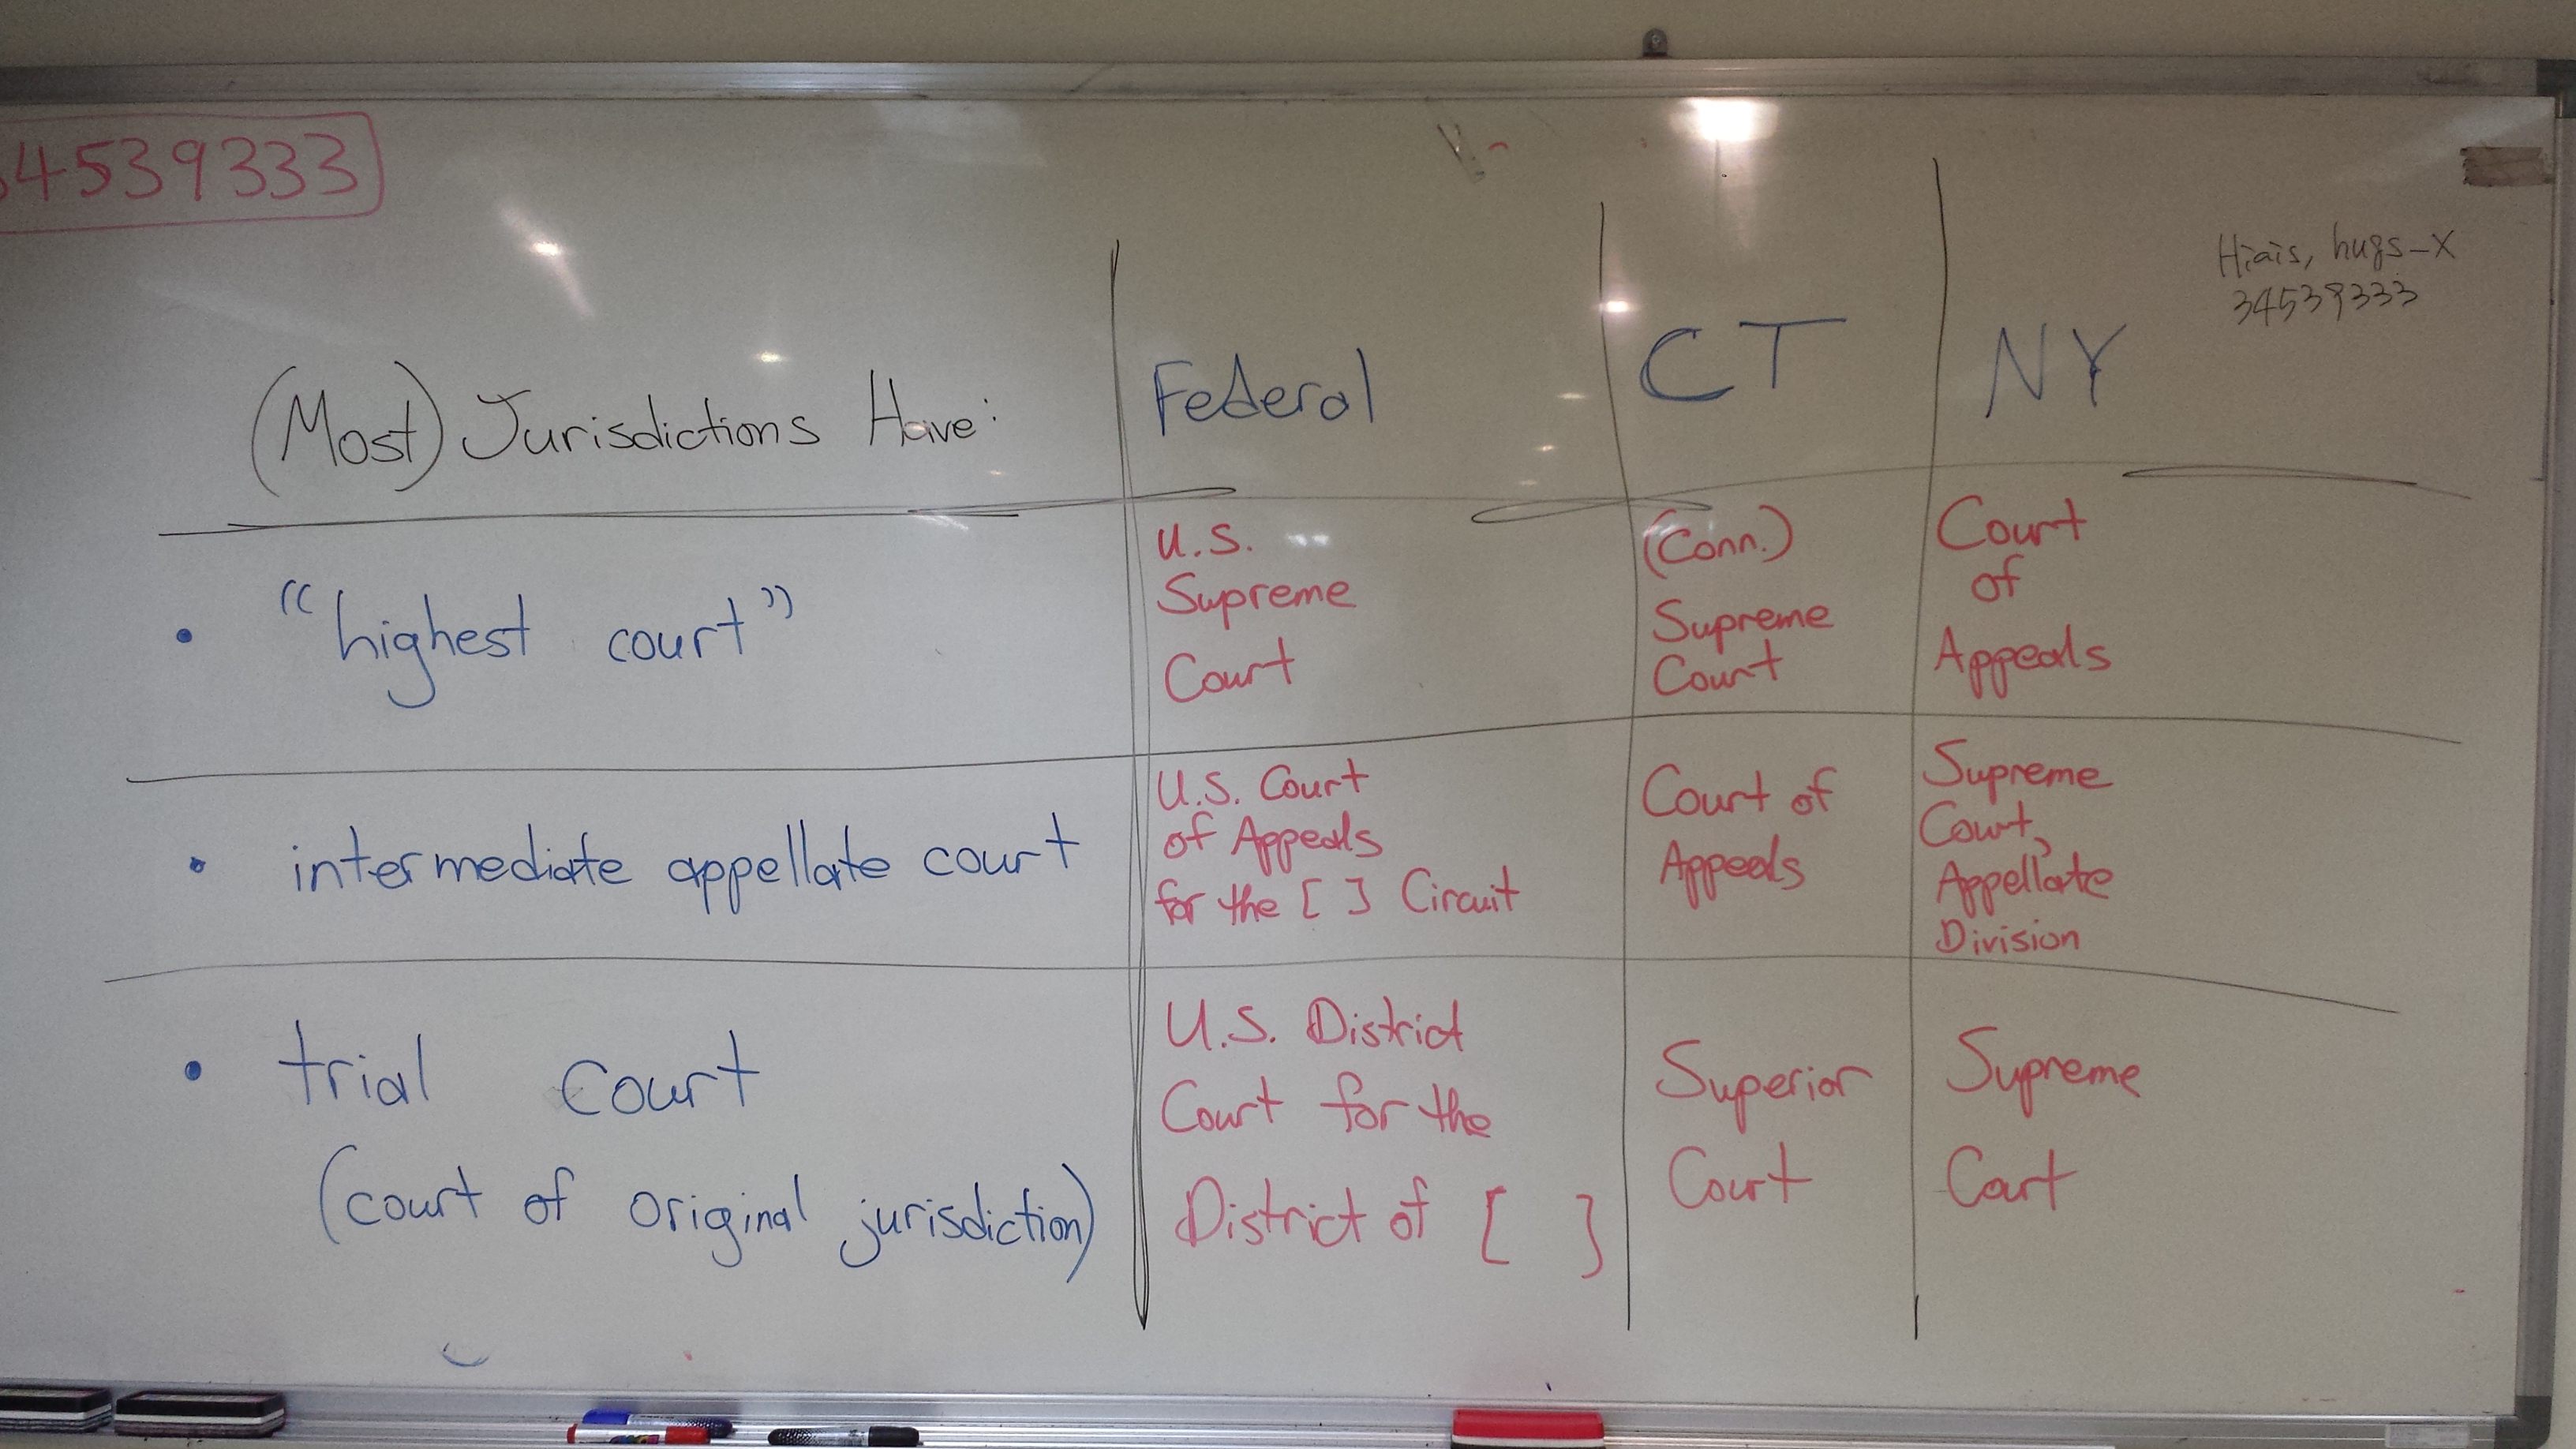 4539333
Hiais, hugs-X
34539333
(Most) Jurisdictions Have:
Federal
CT
NY
• "highest court"
U.S.
Supreme
Court
(Conn.)
Supreme
Court
Court
of
Appeals
• intermediate appellate court
U.S. Court
of Appeals
for the [ ] Circuit
Court of
Appeals
Supreme
Court,
Appellate
Division
• trial court
(court of original jurisdiction)
U.S. District
Court for the
District of [ ]
Superior
Court
Supreme
Court